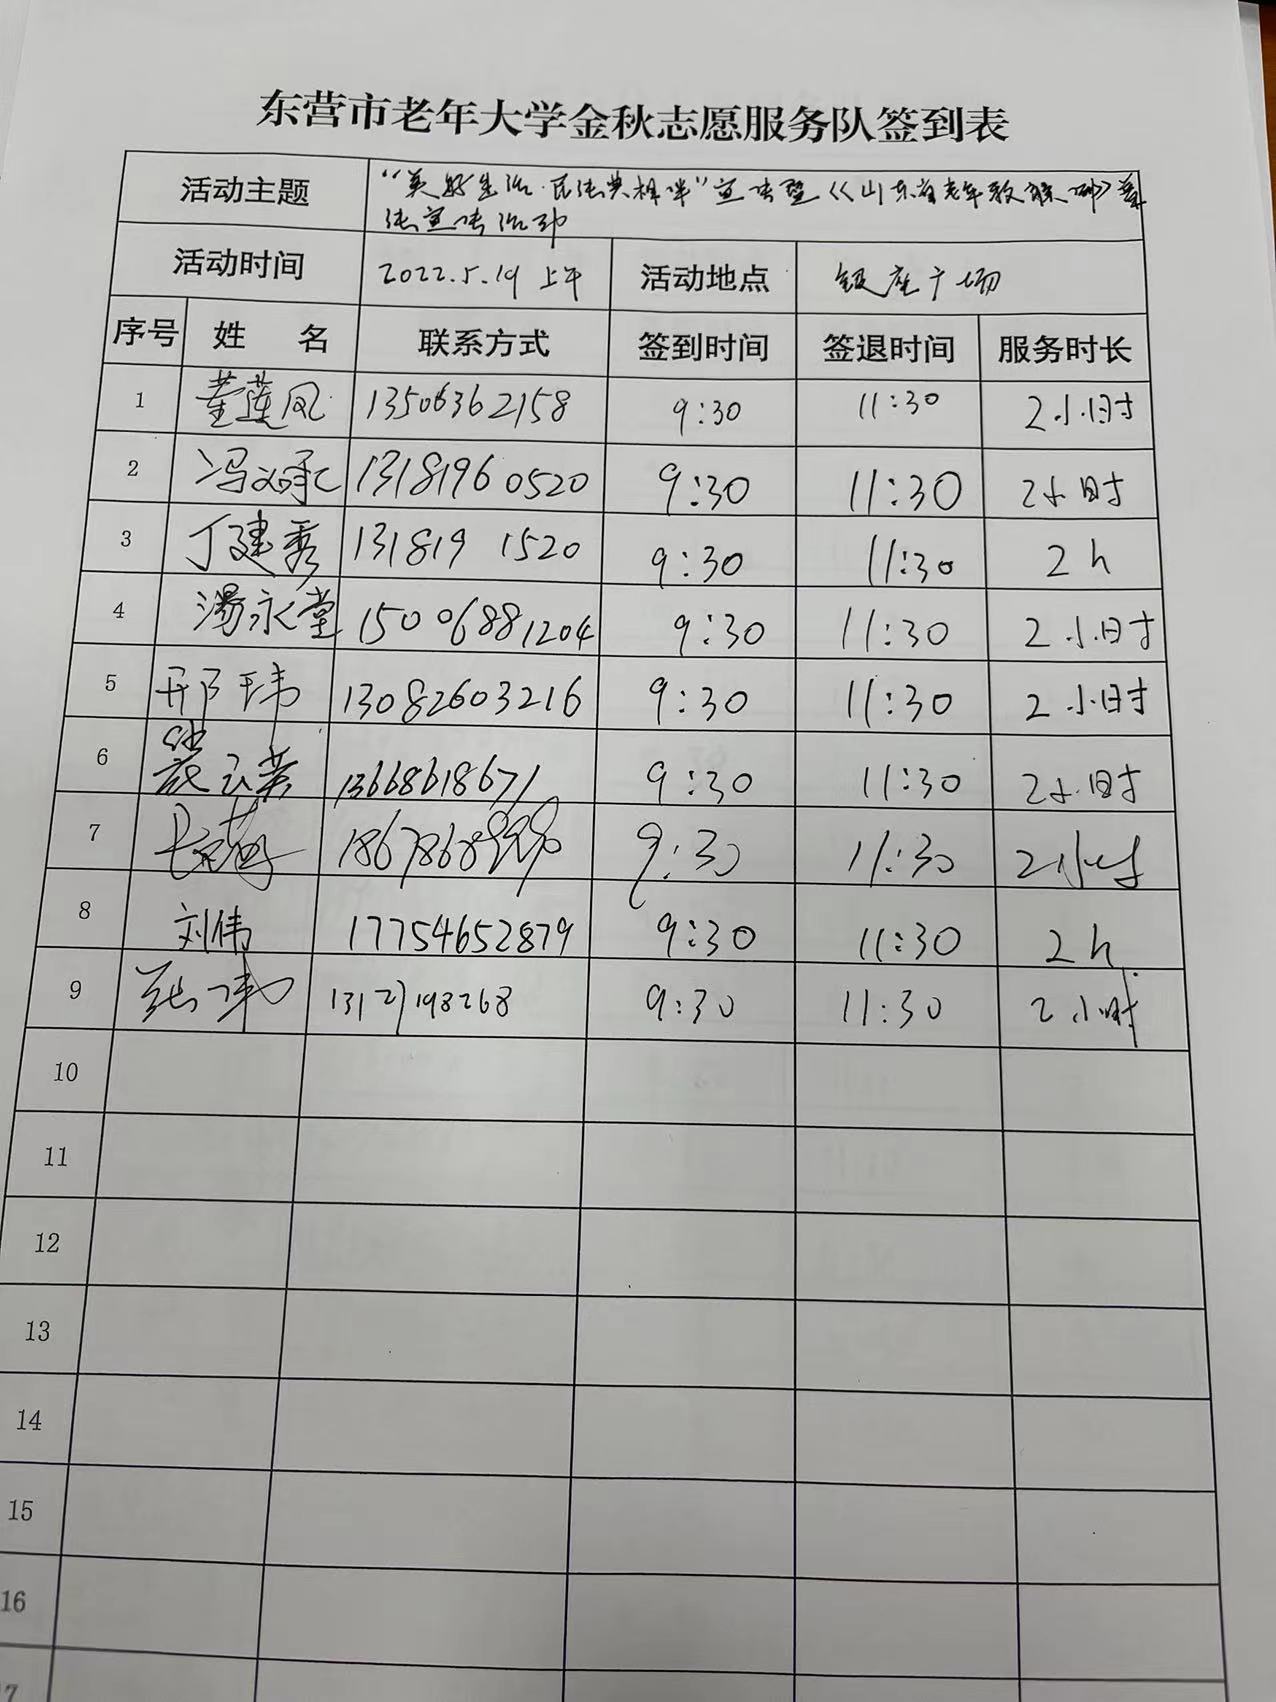 东营市老年大学金秋志愿服务队签到表
活动主题 “美好生活·民法典相伴”宣传暨《山东省老年教育条例》普
法宣传活动
活动时间 2022.5.19 上午 活动地点 银座广场
序号 姓 名 联系方式 签到时间 签退时间 服务时长
1 董莲凤 13506362158 9:30 11:30 2小时
2 冯 13181960520 9:30 11:30 2小时
3 丁建秀 131819 1520 9:30 11:30 2h
4 汤永堂 15006881204 9:30 11:30 2小时
5 邢玮 13082603216 9:30 11:30 2小时
6 13668618671 9:30 11:30 2小时
7 9:30 11:30 2小时
8 刘伟 17754652879 9:30 11:30 2h
9 9:30 11:30 2小时
10
11
12
13
14
15
16
17